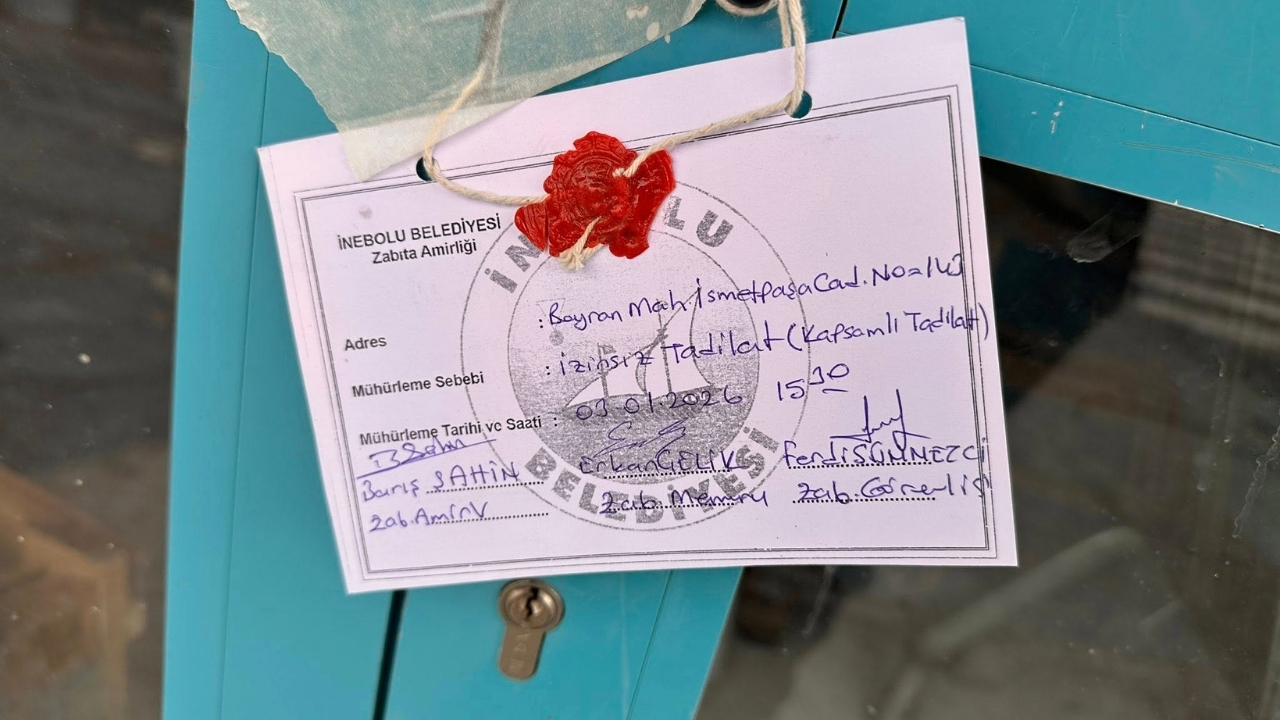 İNEBOLU BELEDİYESİ
Zabıta Amirliği
Adres : Bayran Mah İsmetpaşa Cad. No=143
Mühürleme Sebebi : İzinsiz Tadilat (Kapsamlı Tadilat)
Mühürleme Tarihi ve Saati : 03 01 2026 15 30
Barış ŞAHİN Erkan ÇELİK Ferdi SÜNNETCİ
Zab. Amiri Zab. Memuru Zab. Görevlisi
BELEDİYESİ